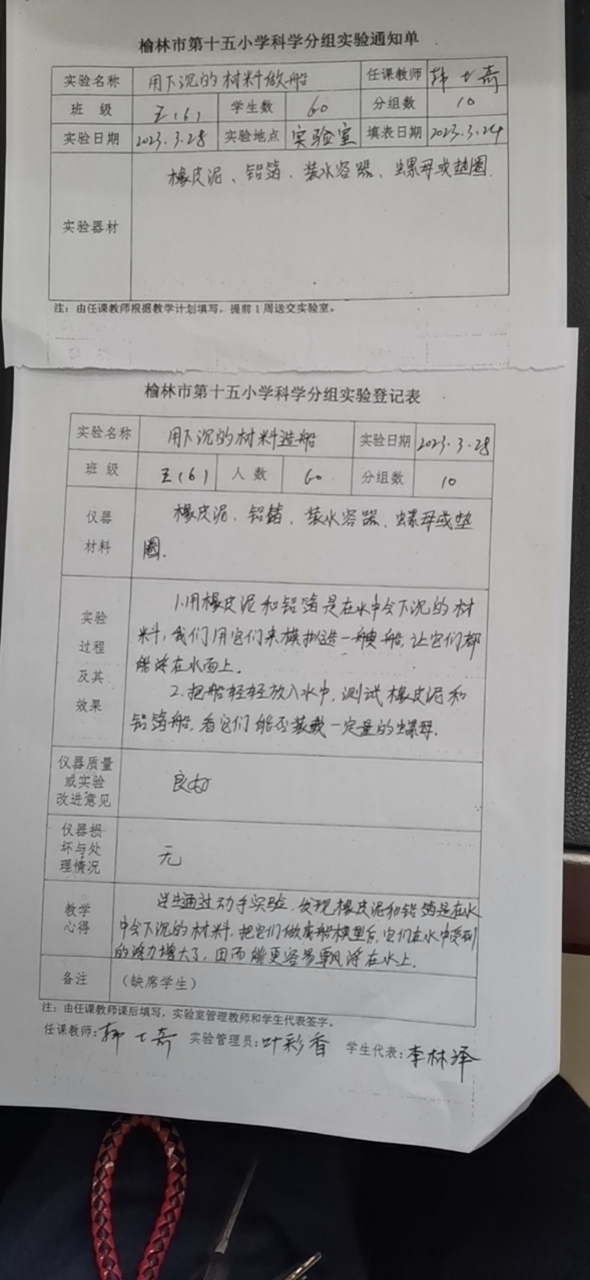 榆林市第十五小学科学分组实验通知单
实验名称 用下沉的材料做船 任课教师
班 级 五(6) 学生数 60 分组数 10
实验日期 2023.3.28 实验地点 实验室 填表日期 2023.3.24
实验器材 橡皮泥、铝箔、装水容器、螺母或垫圈
注：由任课教师根据教学计划填写，提前1周送交实验室。
榆林市第十五小学科学分组实验登记表
实验名称 用下沉的材料造船 实验日期 2023.3.28
班 级 五(6) 人 数 60 分组数 10
仪器材料 橡皮泥、铝箔、装水容器、螺母或垫
圈.
实验过程及其效果 1.用橡皮泥和铝箔是在水中会下沉的材
料，我们用它们来模拟造一艘船，让它们都
能浮在水面上。
2.把船轻轻放入水中，测试橡皮泥和
铝箔船，看它们能否装载一定量的螺母.
仪器质量或实验改进意见 良好
仪器损坏与处理情况 无
教学心得 学生通过动手实验，发现橡皮泥和铝箔是在水
中会下沉的材料，把它们做成船模型后，它们在水中受到
的浮力增大了，因而能更容易飘浮在水上.
备注 （缺席学生）
注：由任课教师课后填写，实验室管理教师和学生代表签字。
任课教师： 实验管理员：叶彩香 学生代表：李林泽